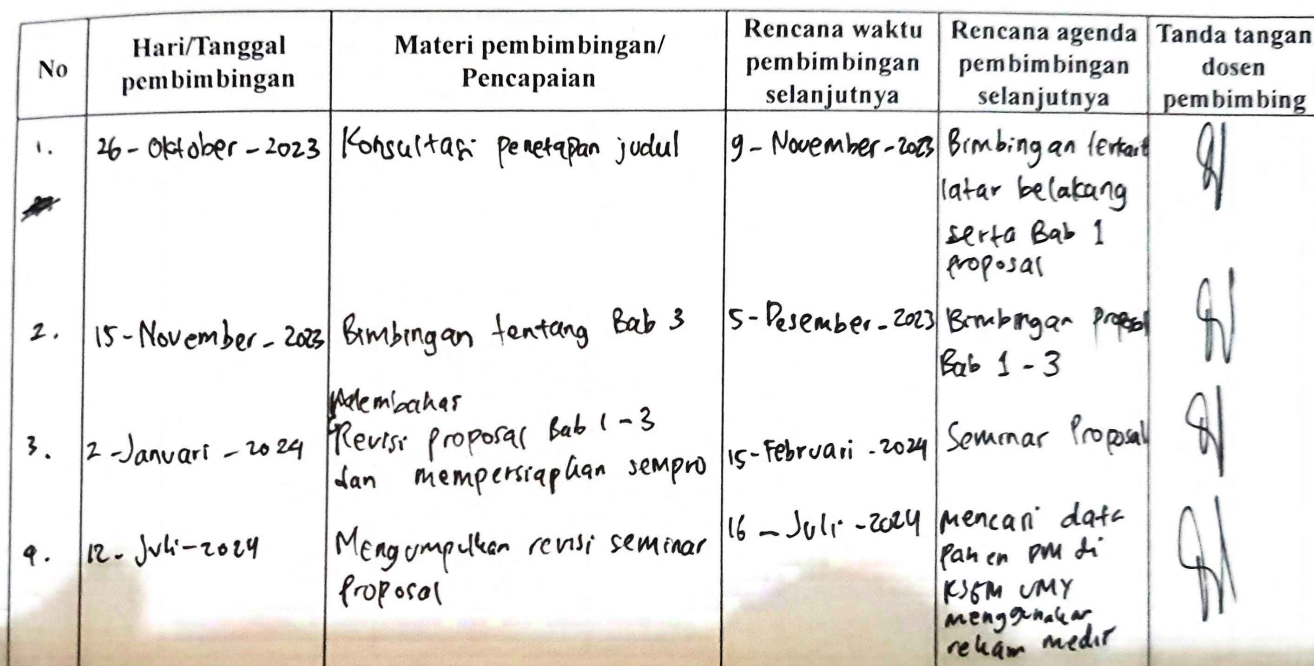 No
Hari/Tanggal
pembimbingan
Materi pembimbingan/
Pencapaian
Rencana waktu
pembimbingan
selanjutnya
Rencana agenda
pembimbingan
selanjutnya
Tanda tangan
dosen
pembimbing
1.
26 - Oktober - 2023
Konsultasi penetapan judul
9 - November - 2023
Bimbingan terkait
latar belakang
serta Bab 1
proposal
2.
15 - November - 2023
Bimbingan tentang Bab 3
5 - Desember - 2023
Bimbingan proposal
Bab 1 - 3
3.
2 - Januari - 2024
Membahas
Revisi proposal Bab 1 - 3
dan mempersiapkan sempro
15 - Februari - 2024
Seminar Proposal
4.
12 - Juli - 2024
Mengumpulkan revisi seminar
proposal
16 - Juli - 2024
Mencari data
pasien DM di
UMY
menggunakan
rekam medis